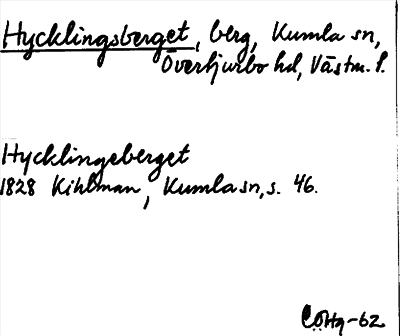 Hycklingsberget, berg, Kumla sn,
Övertjurbo hd, Västm. l.
Hycklingeberget
1828 Kihlman, Kumla sn, s. 46.
-62